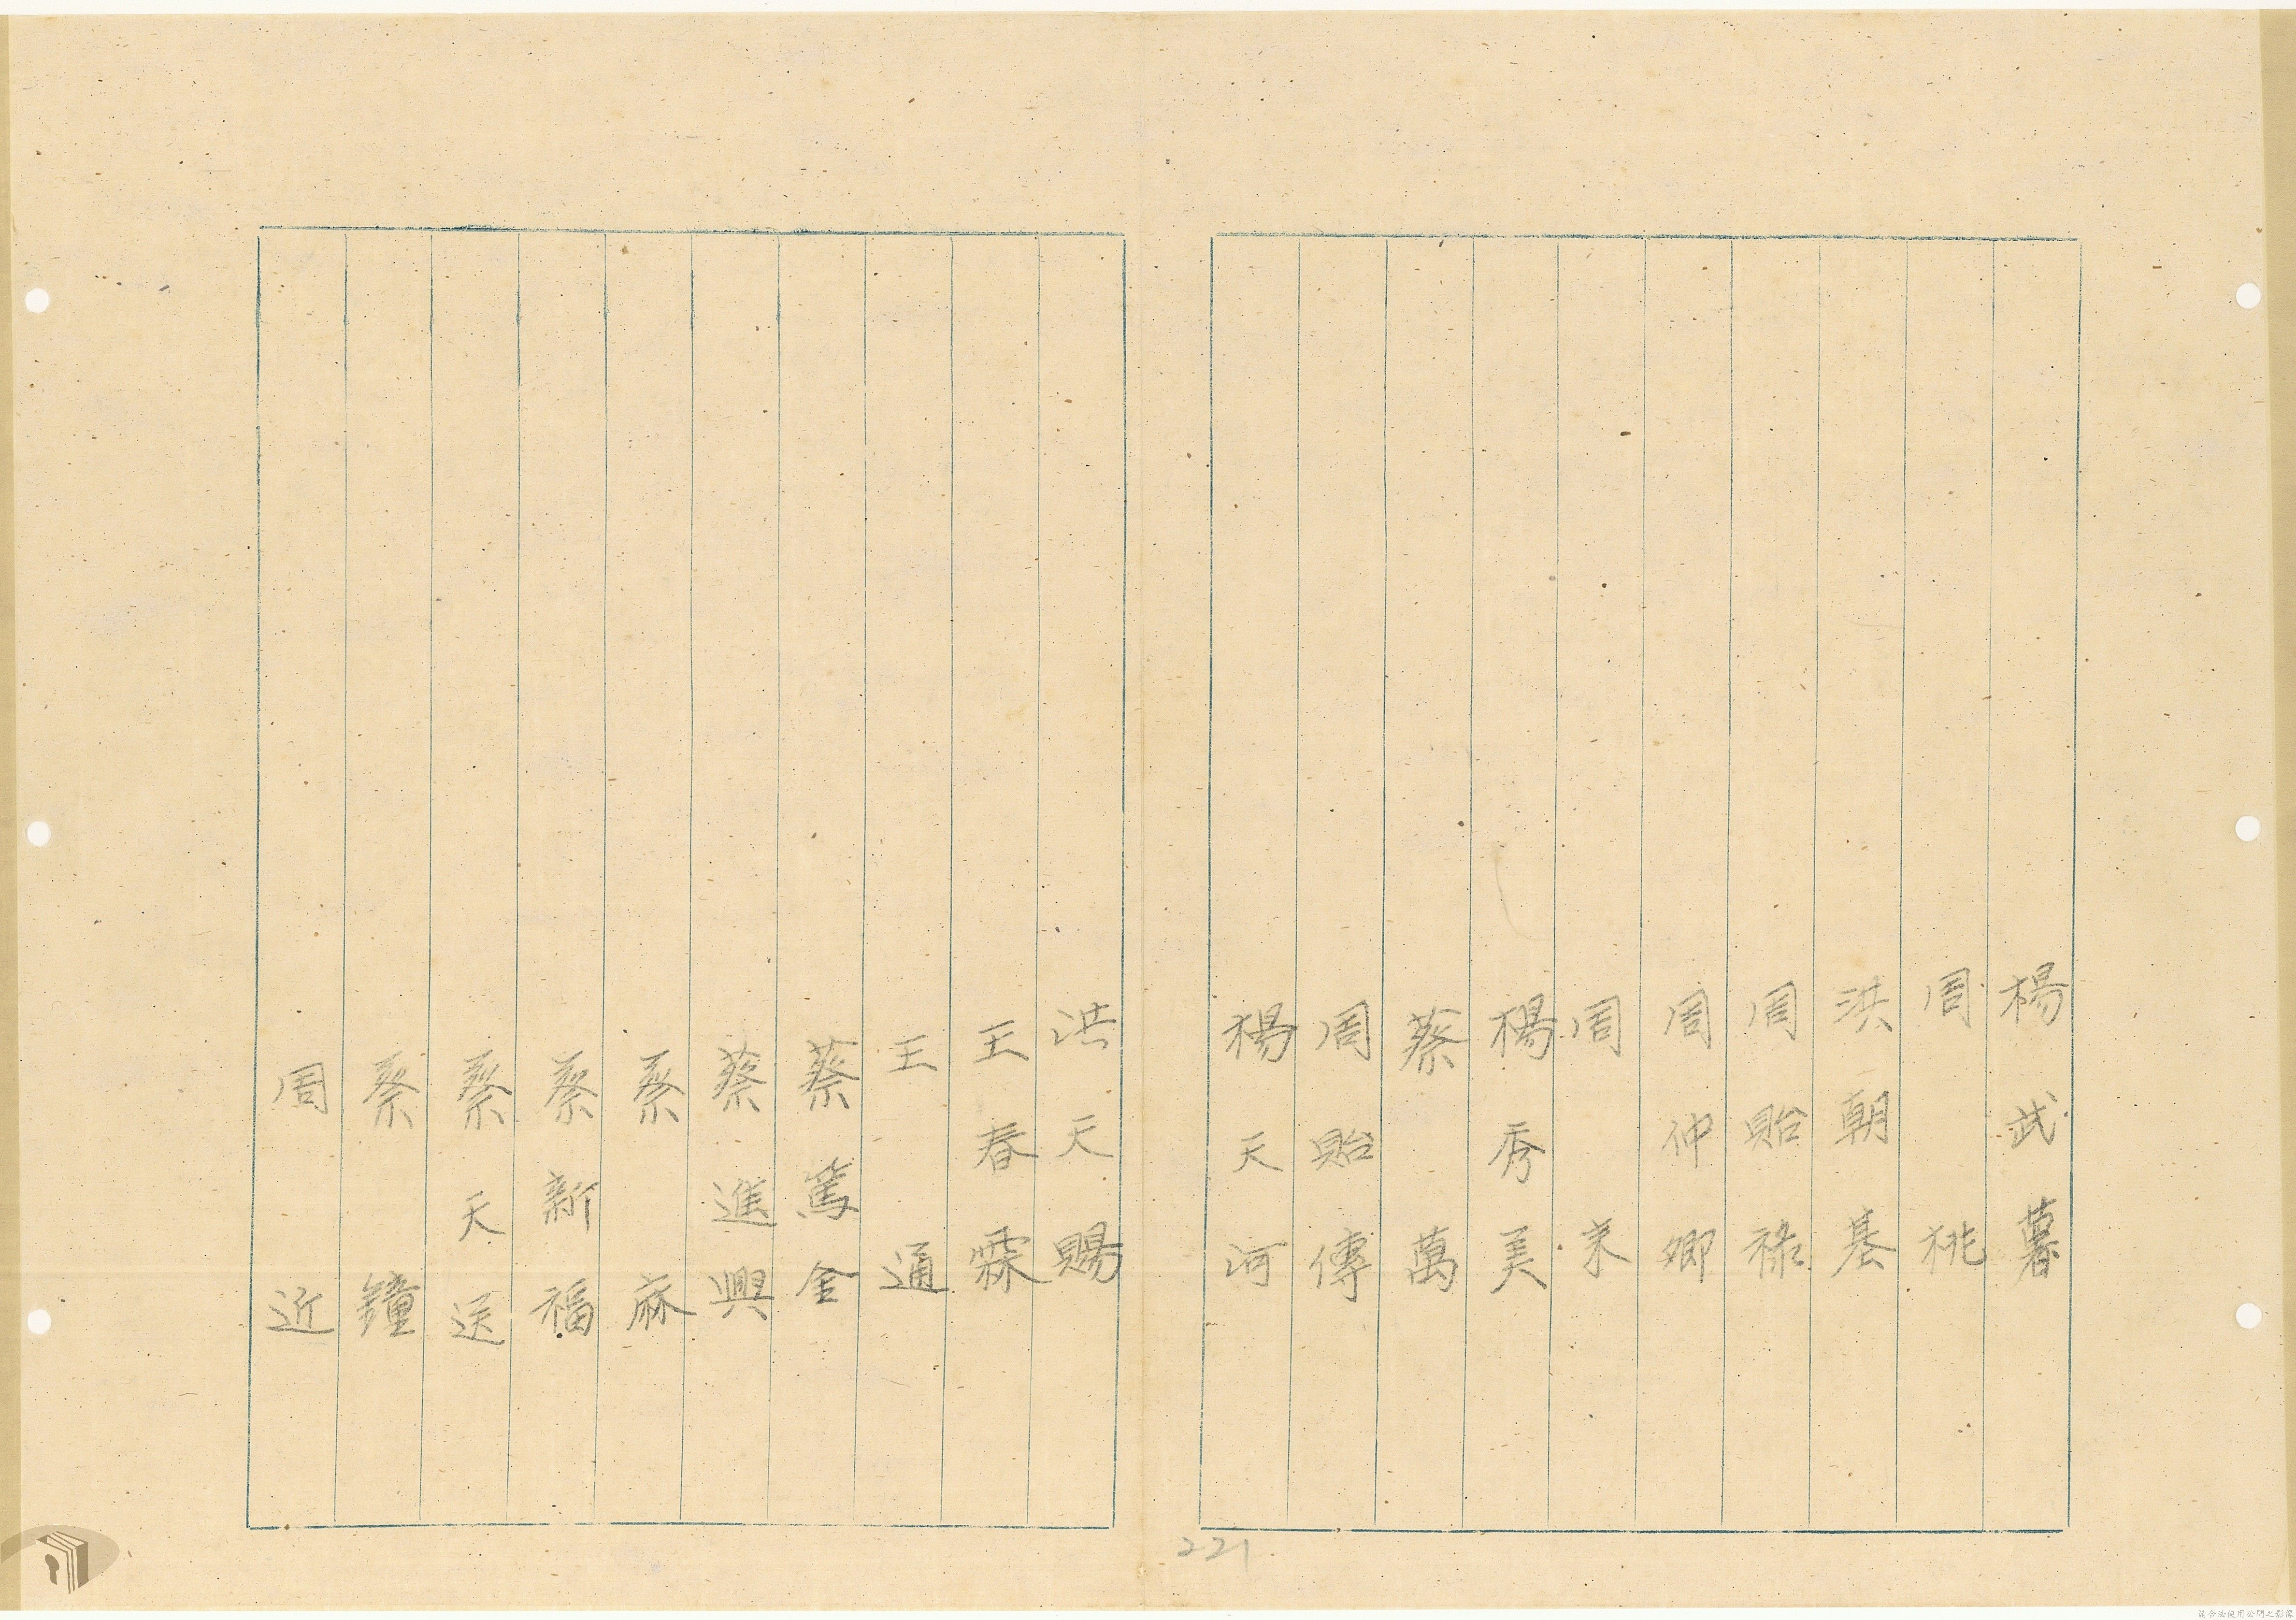 楊武暮
周桃
洪朝基
周貽祿
周仲卿
周来
楊秀美
蔡萬
周貽傳
楊天河
洪天賜
王春霖
王通
蔡篤全
蔡進興
蔡麻
蔡新福
蔡天送
蔡鐘
周近
221
請合法使用公開之影像